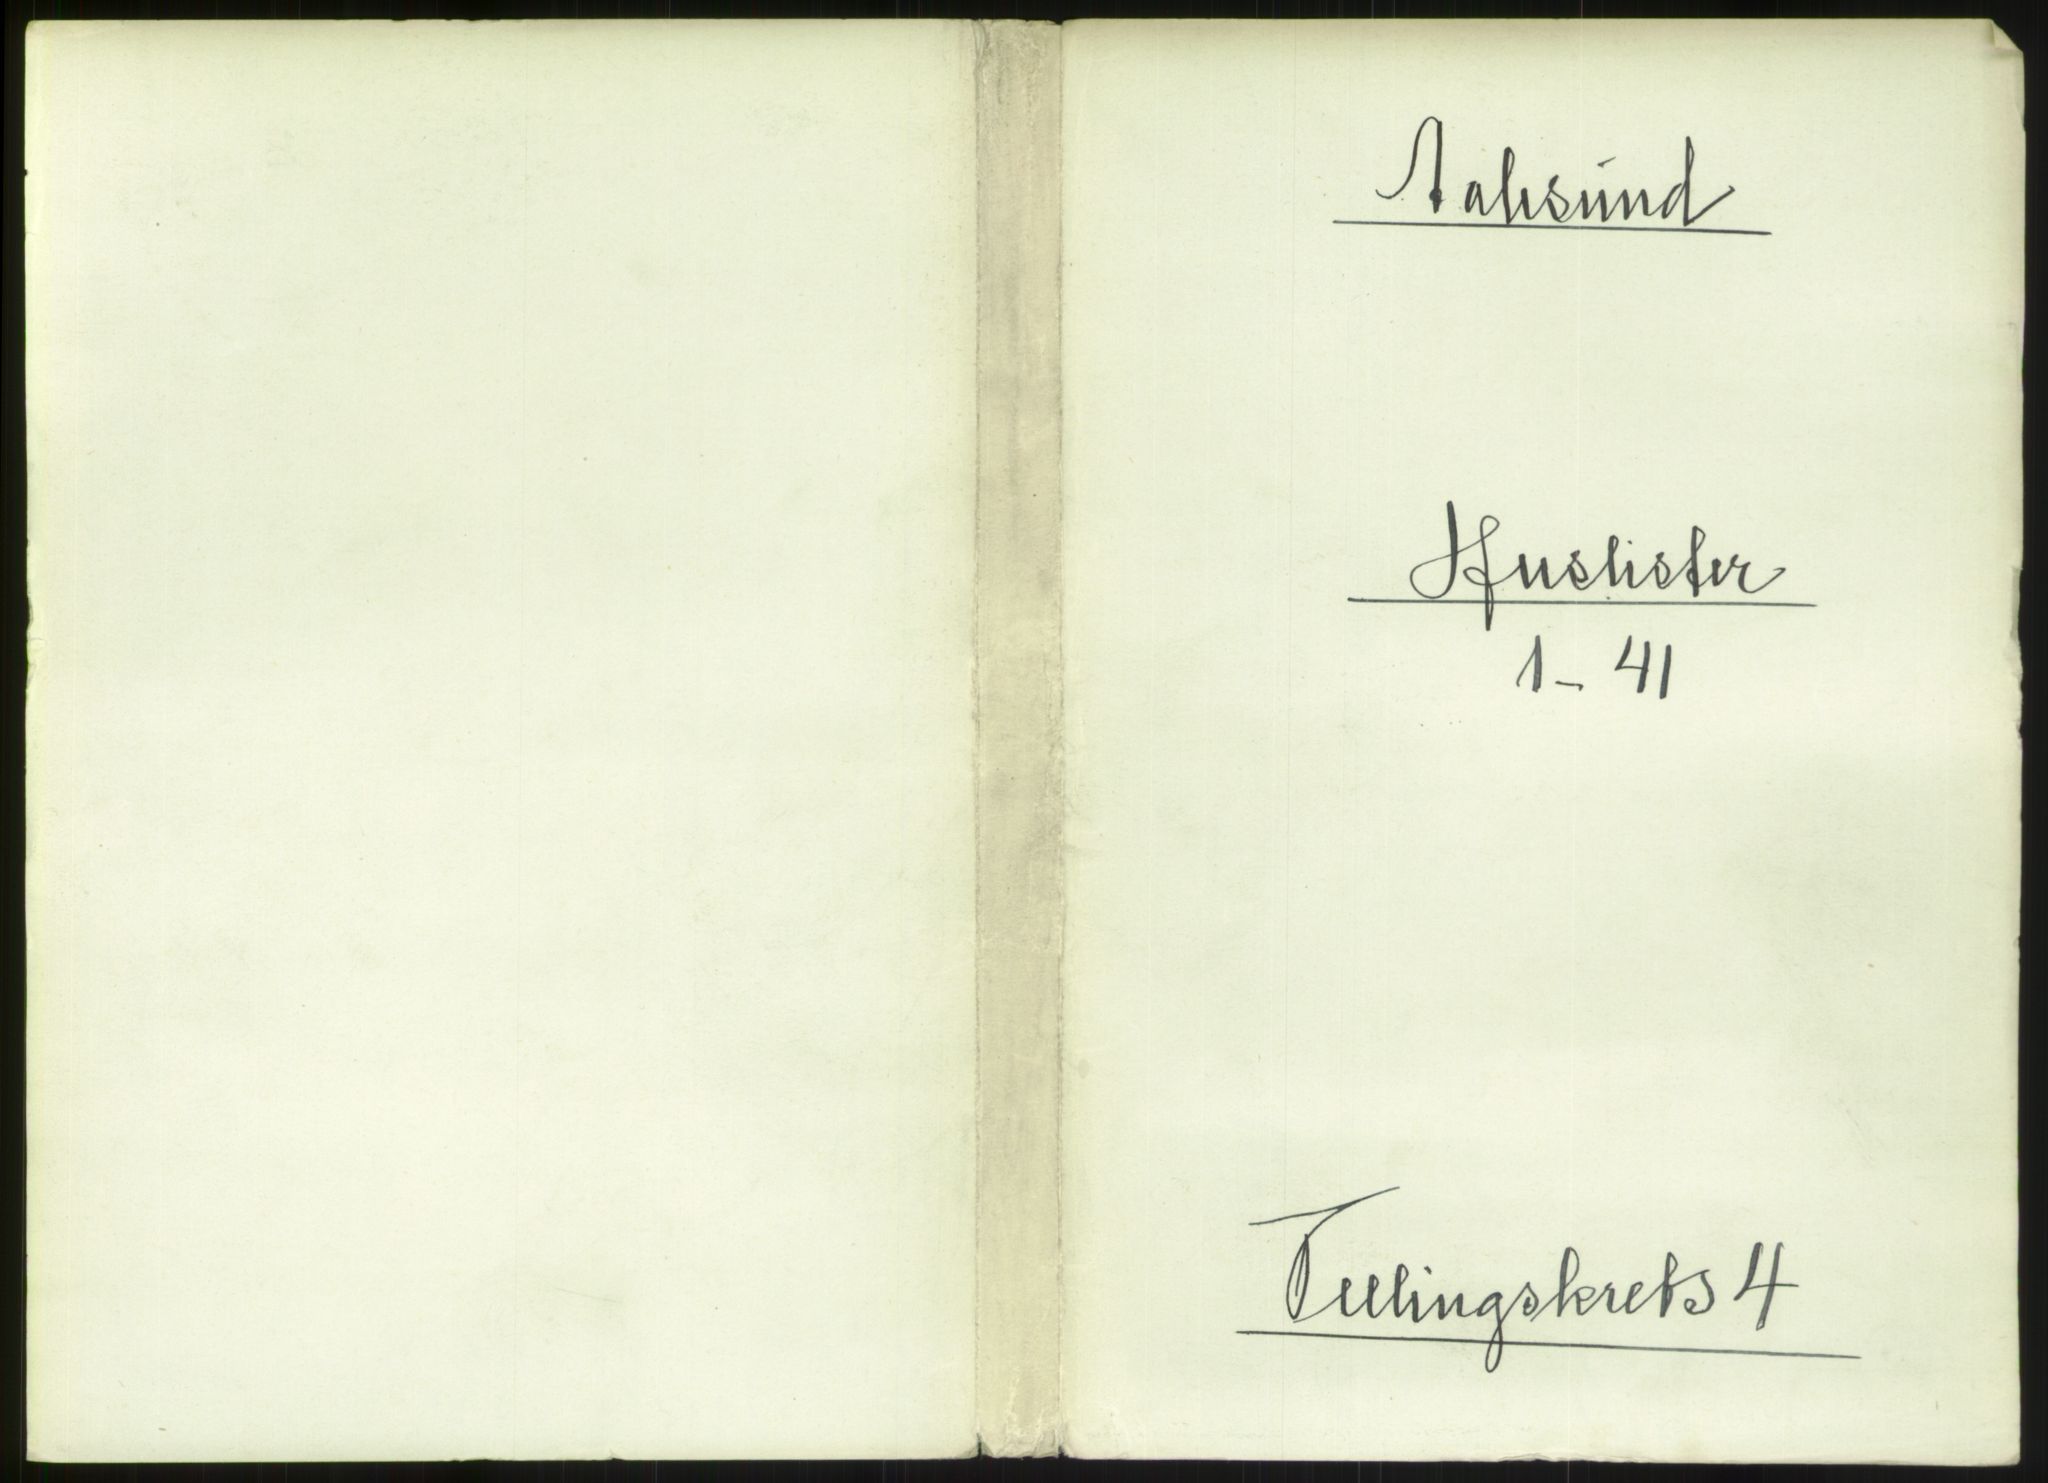 Aalesund
Huslister
1 - 41
Tellingskrets 4